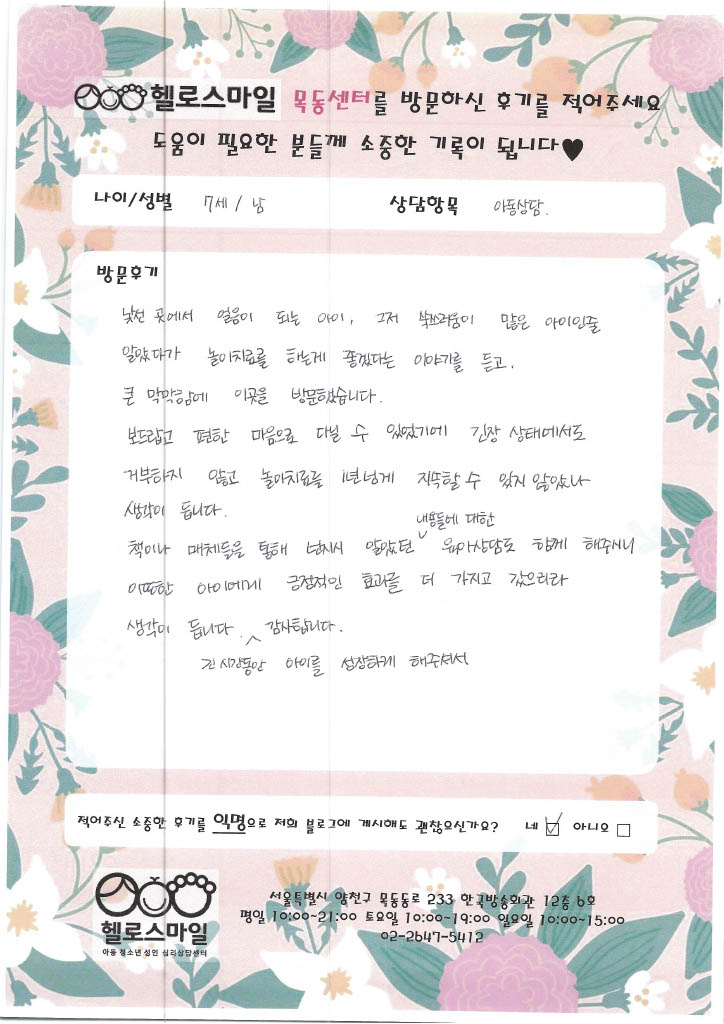 헬로스마일 목동센터를 방문하신 후기를 적어주세요
도움이 필요한 분들께 소중한 기록이 됩니다♥
나이/성별 7세 / 남 상담항목 아동상담.
방문후기
낯선 곳에서 얼음이 되는 아이, 그저 쑥쓰러움이 많은 아이인줄
알았다가 놀이치료를 하는게 좋겠다는 이야기를 듣고,
큰 막막함에 이곳을 방문했습니다.
보드랍고 편한 마음으로 다닐 수 있었기에 긴장 상태에서도
거부하지 않고 놀이치료를 1년넘게 지속할 수 있지 않았나
생각이 듭니다.
내용들에 대한
책이나 매체들을 통해 넘겨서 알았던 육아상담도 함께 해주시니
이또한 아이에게 긍정적인 효과를 더 가지고 갔으리라
생각이 듭니다. 감사합니다.
긴 시간동안 아이를 성장하게 해주셔서
적어주신 소중한 후기를 익명으로 저희 블로그에 게시해도 괜찮으신가요? 네 ☑ 아니오 ☐
헬로스마일
아동 청소년 성인 심리상담센터
서울특별시 양천구 목동동로 233 한국방송회관 12층 6호
평일 10:00~21:00 토요일 10:00~19:00 일요일 10:00~15:00
02-2647-5412